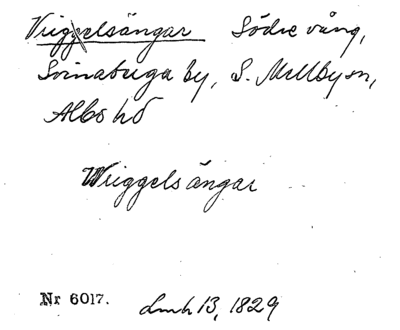 Vriggelsängar Södre vång,
Svinabuga by, S. Mellby sn,
Albo hd
Wriggelsängar
Nr 6017.
Lmh 13, 1829